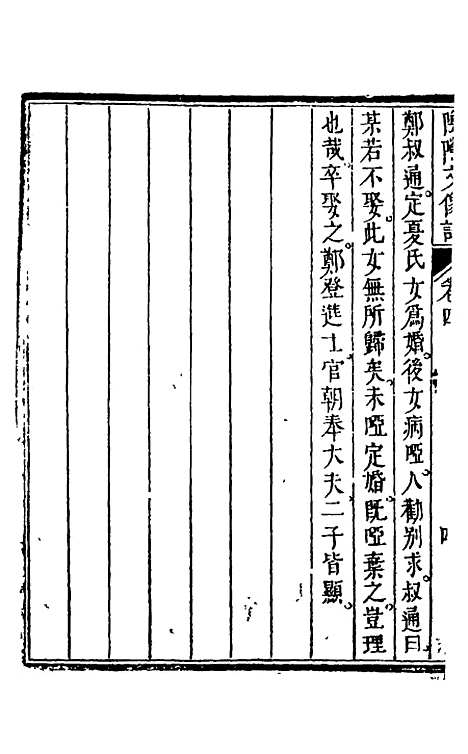 鄭叔通定憂氏女爲婚後女病啞人勸別求叔通曰
某若不娶此女無所歸矣未啞定婚既啞棄之豈理
也哉卒娶之鄭登進士官朝奉大夫二子皆顯
卷四